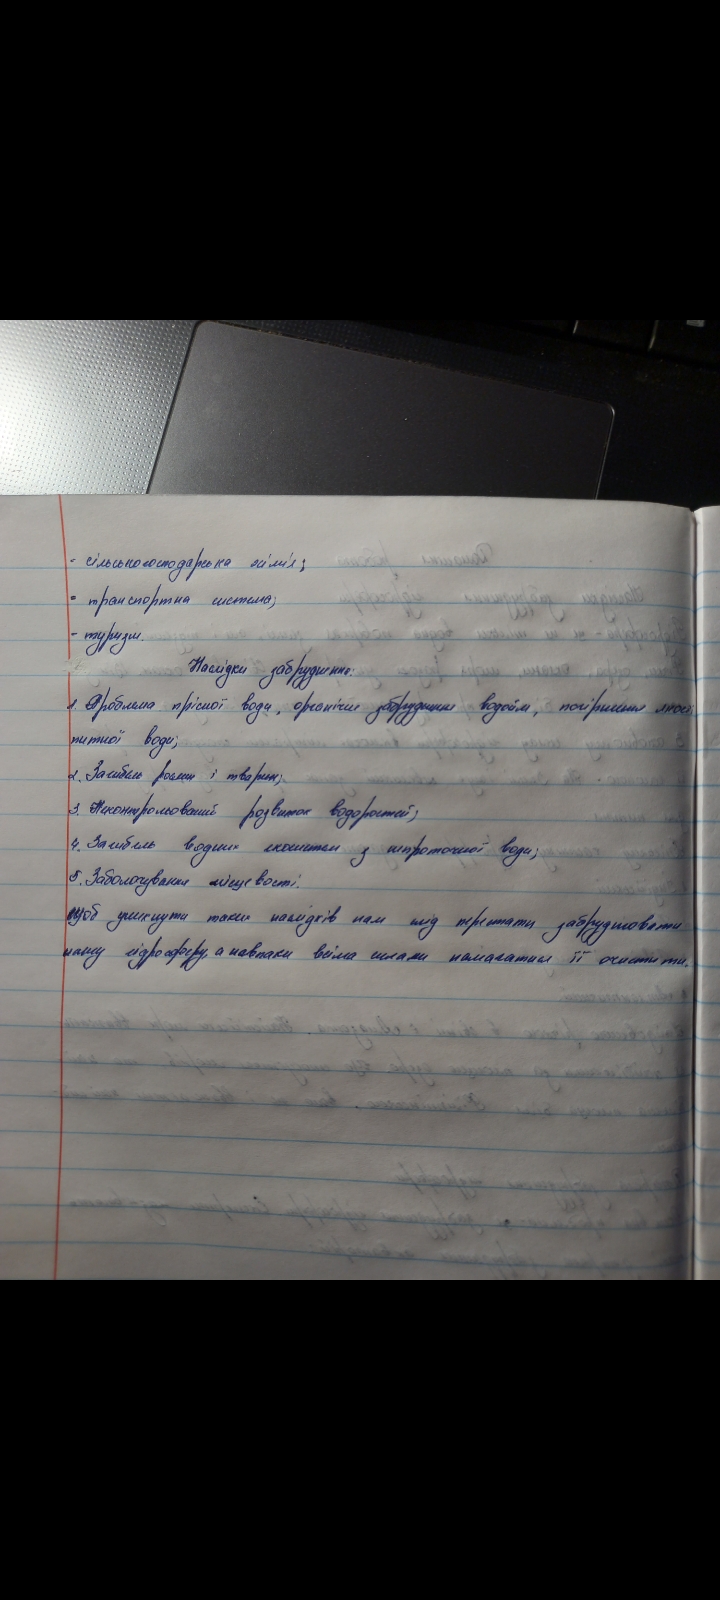 - сільськогосподарська хімія;
- транспортна система;
- туризм.
Наслідки забруднення:
1. Проблема прісної води, органічне забруднення водойм, погіршення якості
питної води;
2. Загибель рослин і тварин;
3. Неконтрольований розвиток водоростей;
4. Загибель водних екосистем з непроточної води;
5. Заболочування місцевості.
Щоб уникнути таких наслідків нам слід перестати забруднювати
нашу гідросферу, а навпаки всіма силами намагатися її очистити.